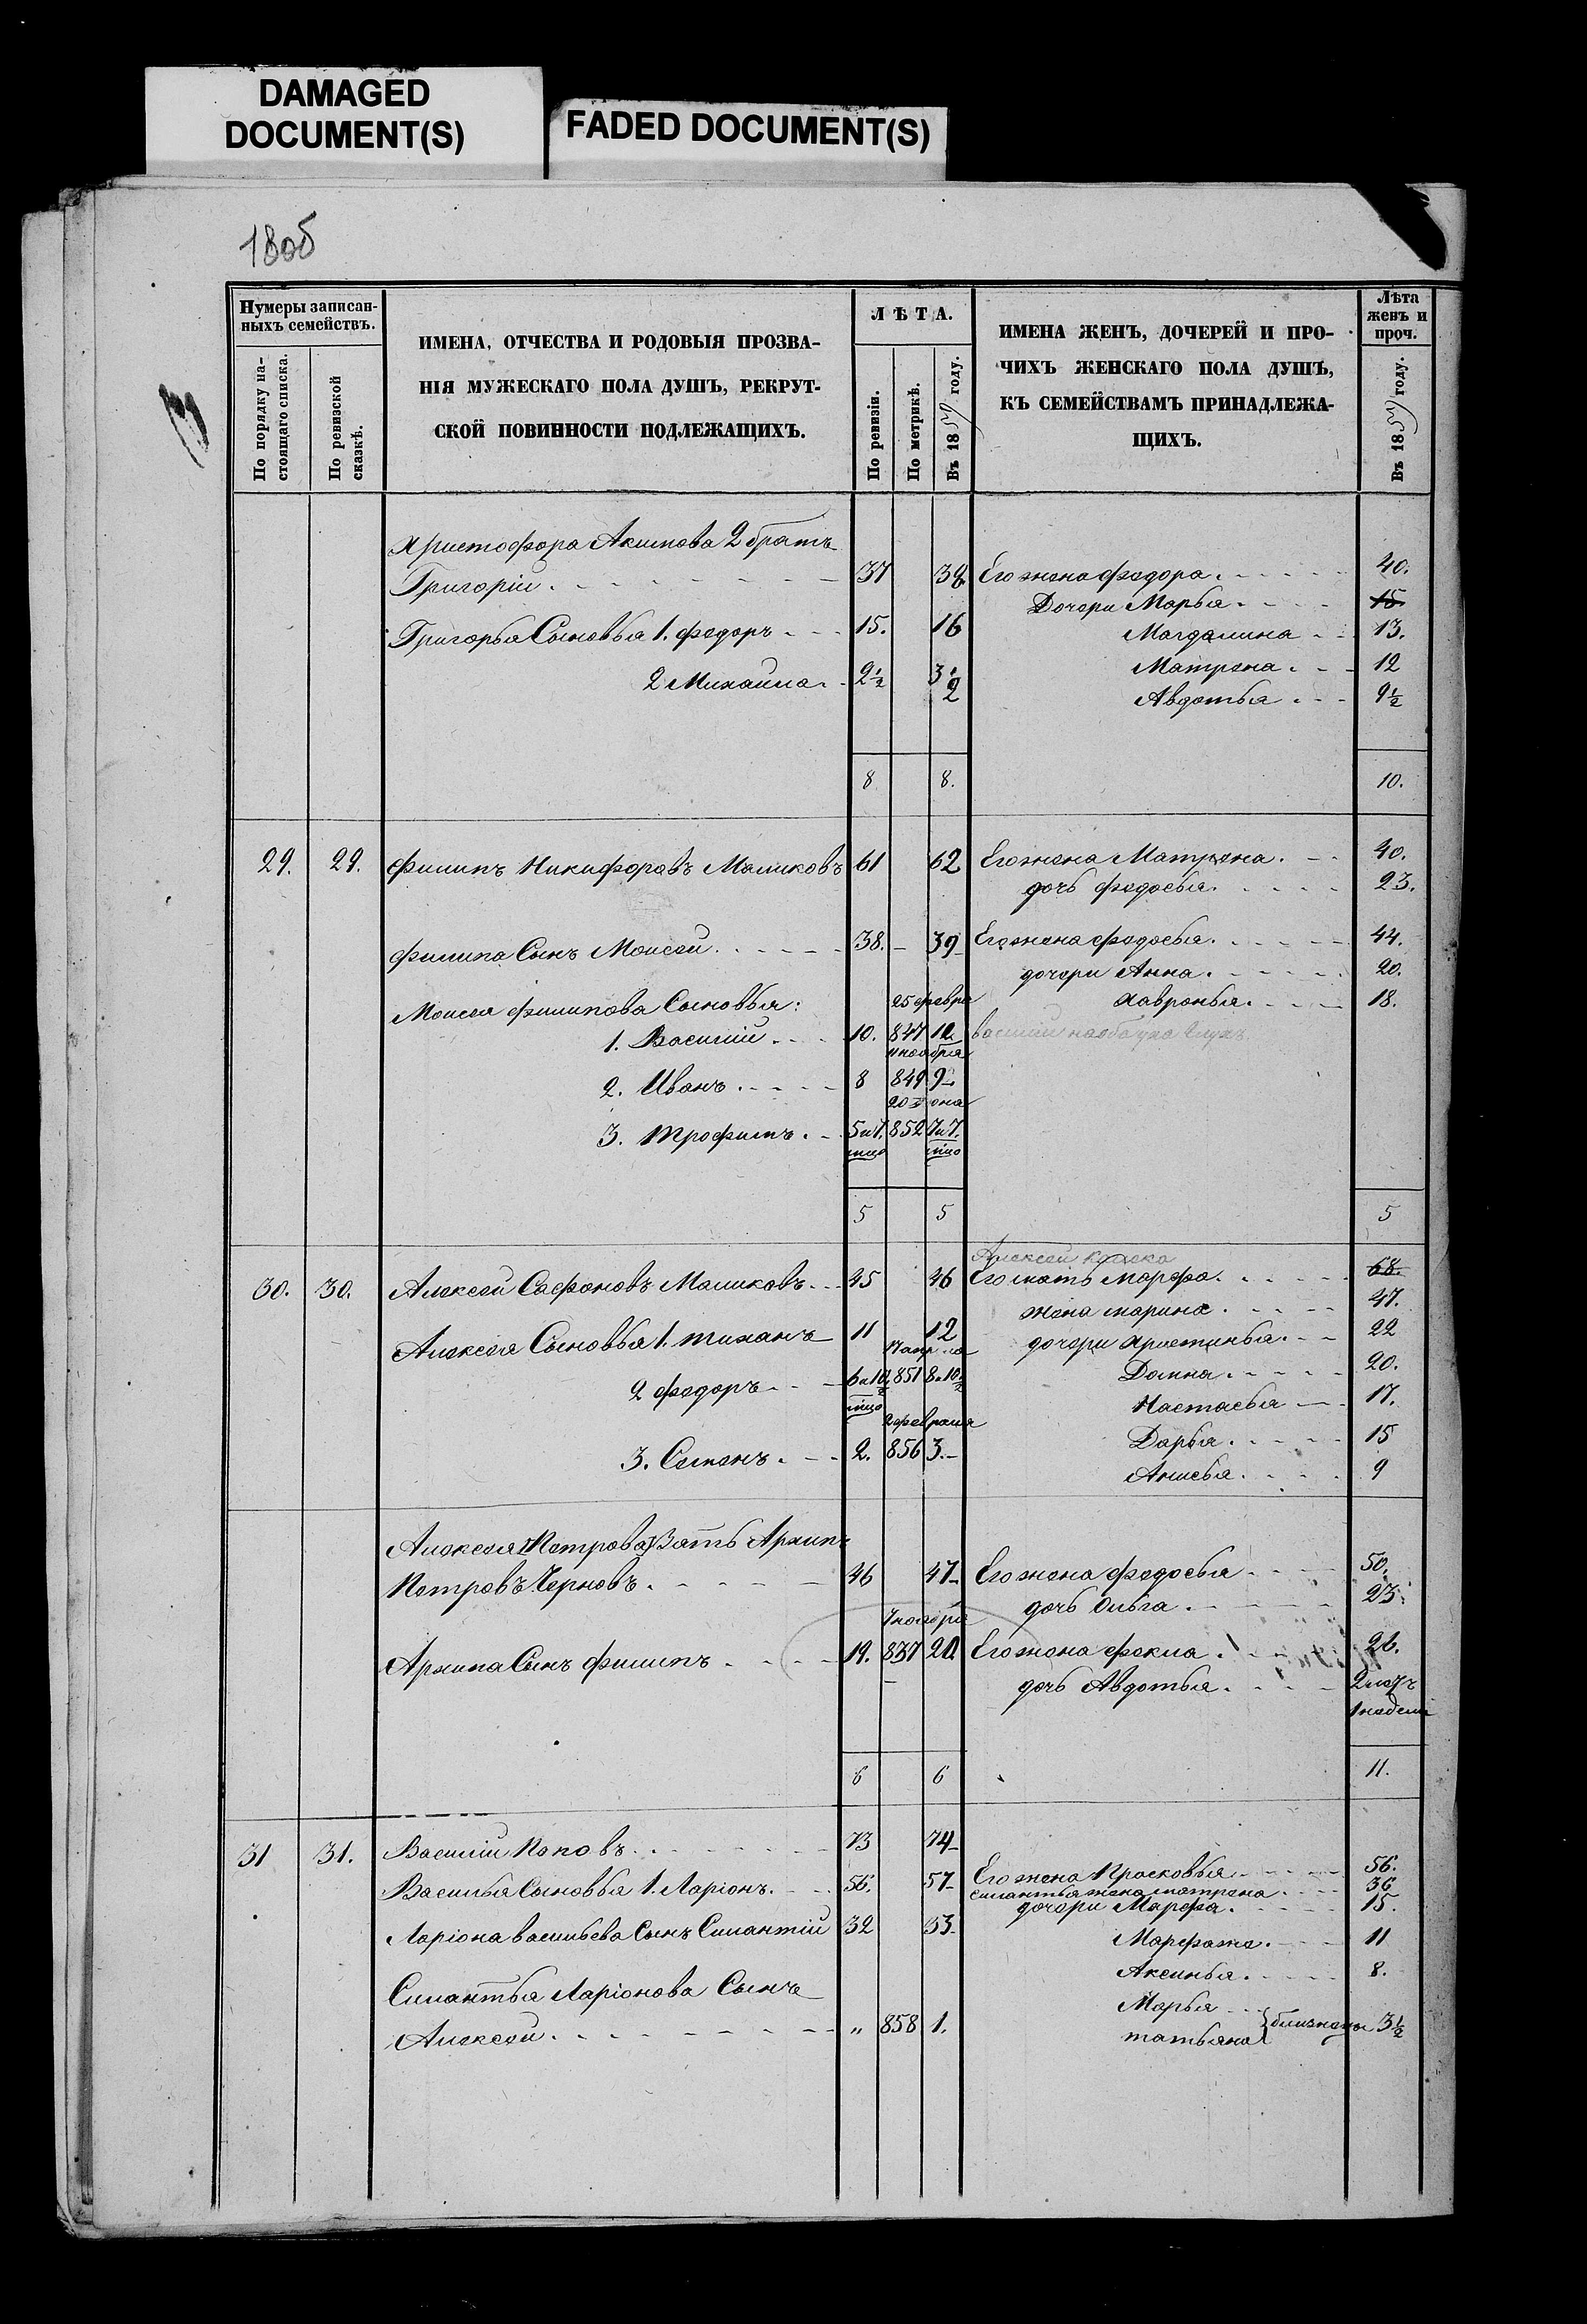 DAMAGED
DOCUMENT(S)
FADED DOCUMENT(S)
1805
Нумеры записан-
ныхъ семействъ.
По порядку на-
стоящаго списка.
По ревизской
сказкѣ.
ИМЕНА, ОТЧЕСТВА И РОДОВЫЯ ПРОЗВА-
НІЯ МУЖЕСКАГО ПОЛА ДУШЪ, РЕКРУТ-
СКОЙ ПОВИННОСТИ ПОДЛЕЖАЩИХЪ.
ЛѢТА.
По ревизіи.
По метрикѣ.
Въ 1859 году.
ИМЕНА ЖЕНЪ, ДОЧЕРЕЙ И ПРО-
ЧИХЪ ЖЕНСКАГО ПОЛА ДУШЪ,
КЪ СЕМЕЙСТВАМЪ ПРИНАДЛЕЖА-
ЩИХЪ.
Лѣта
женъ и
проч.
Въ 1859 году.
Христофора Акимова 2 братъ
Григорій 37 38 Его жена Федора 40.
Дочери Марья 15
Григорья Сыновья 1. Федоръ 15. 16 Магдалина 13.
Матрена 12
2 Михаила 2½ 3½
Авдотья 9½
8 8. 10.
29. 29. Филипъ Никифоровъ Маликовъ 61 62 Его жена Матрена 40.
дочь Федосья 23.
Филипа Сынъ Моисей 38. 39 Его жена Федосья 44.
дочери Анна 20.
Моисея Филипова Сыновья: 25 февра Хавронья 18.
1. Василий 10. 847 12
11 ноября
2. Иванъ 8 849 9
20
3. Трофимъ 5 и 7. 852 7 и 7.
5 5 5
Алексей
30. 30. Алексей Сафоновъ Маликовъ 45 46 Его мать Марфа 68.
жена Марина 47.
Алексея Сыновья 1. Тиханъ 11 12 дочери Христинья 22
17
2 Федоръ 6 и 10½ 851 8 и 10½ Домна 20.
Настасья 17.
2 февраля
3. Семенъ 2. 856 3. Дарья 15
Анисья 9
Алексея Петрова Зять Архипъ
Петровъ Черновъ 46 47 Его жена Федосья 50.
дочь Ольга 23.
7 ноября
Архипа Сынъ Филипъ 19. 837 20 Его жена Фекла 26.
дочь Авдотья
6 6 11.
31 31. Василій Поповъ 73 74
Василья Сыновья 1. Ларіонъ 56. 57 Его жена Прасковья 56.
Силантья жена Матрена 36
дочери Марфа 15.
Ларіона васильева Сынъ Силантій 32 33
Марфа 11
Аксинья 8.
Силантья Ларіонова Сынъ
Марья
Алексей " 858 1. Татьяна близнецы 3½